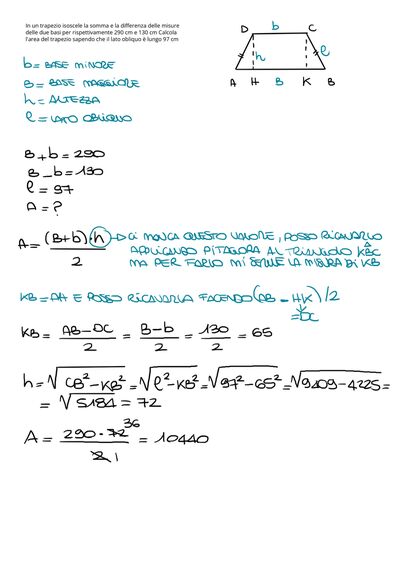 In un trapezio isoscele la somma e la differenza delle misure
delle due basi per rispettivamente 290 cm e 130 cm Calcola
l'area del trapezio sapendo che il lato obliquo è lungo 97 cm
D b C
h l
A H B K B
b = BASE MINORE
B = BASE MAGGIORE
h = ALTEZZA
l = LATO OBLIQUO
B + b = 290
B - b = 130
l = 97
A = ?
A = (B+b)·h / 2 → CI MANCA QUESTO VALORE, POSSO RICAVARLO
APPLICANDO PITAGORA AL TRIANGOLO KB̂C
MA PER FARLO MI SERVE LA MISURA DI KB
KB = AH E POSSO RICAVARLA FACENDO (AB - HK)/2
= DC
KB = AB - DC / 2 = B - b / 2 = 130 / 2 = 65
h = √CB² - KB² = √l² - KB² = √97² - 65² = √9409 - 4225 =
= √5184 = 72
A = 290 · 72 36 / 2 1 = 10440